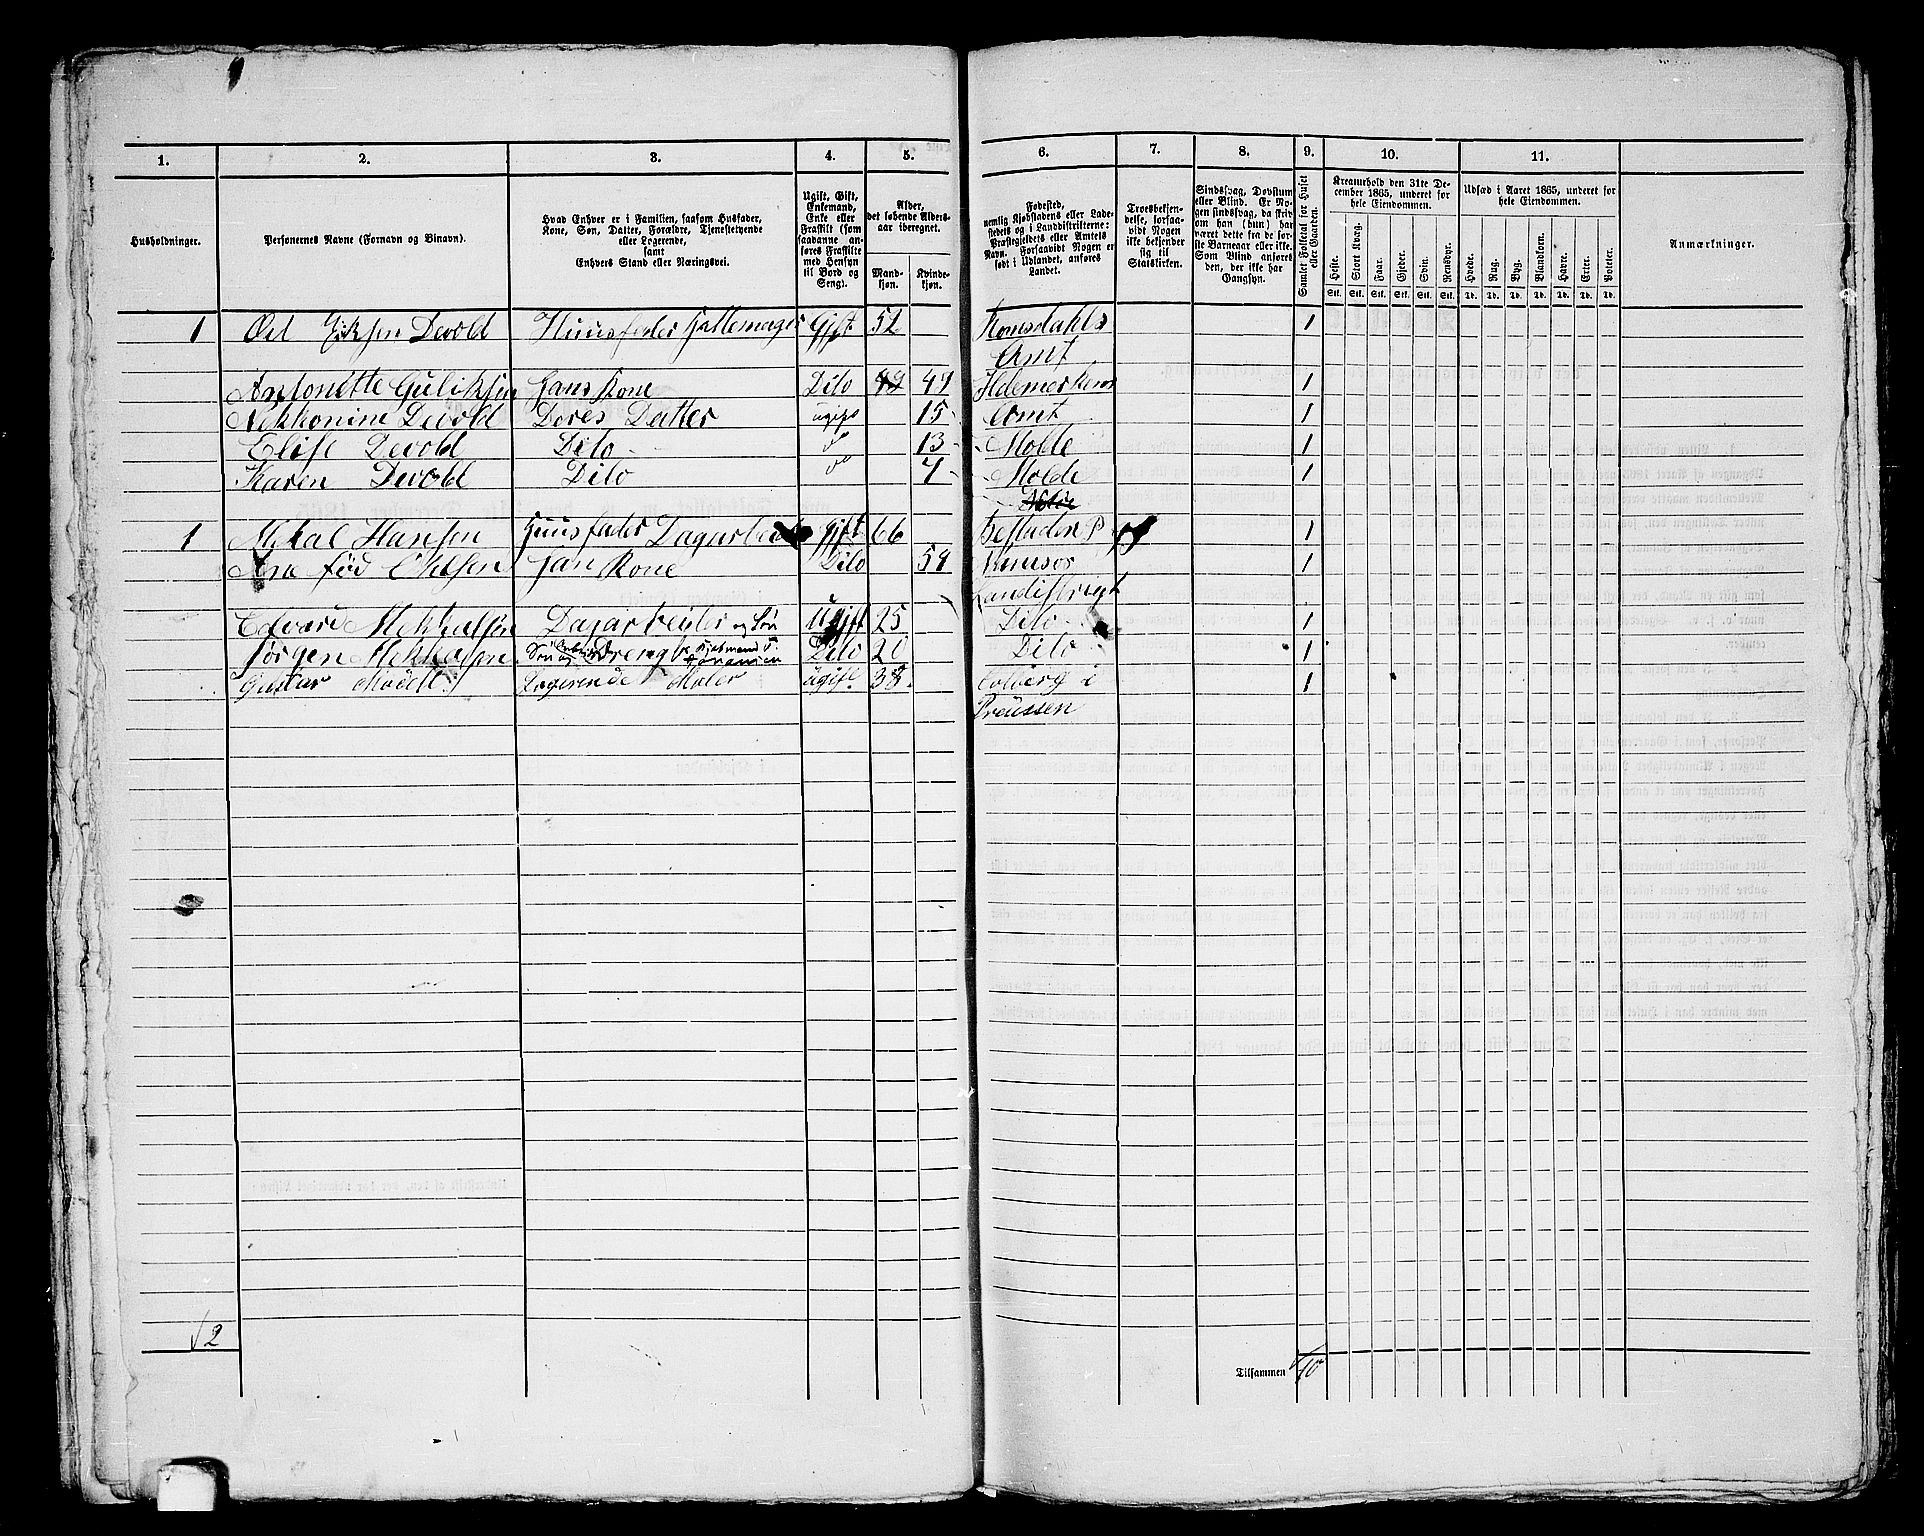 1. 2. 3. 4. 5. 6. 7. 8. 9. 10. 11.
Husholdninger.
Personernes Navne (Fornavn og Binavn).
Hvad Enhver er i Familien, saasom Husfader,
Kone, Søn, Datter, Forældre, Tjenestetyende
eller Logerende,
samt
Enhvers Stand eller Næringsvei.
Ugift, Gift,
Enkemand,
Enke eller
Fraskilt (som
saadanne an-
føres Fraskilte
med Hensyn
til Bord og
Seng).
Alder,
det løbende Alders-
aar iberegnet.
Mand-
kjøn.
Kvinde-
kjøn.
Fødested,
nemlig Kjøbstadens eller Lade-
stedets og i Landdistrikterne:
Præstegjeldets eller Amtets
Navn. Forsaavidt Nogen er
født i Udlandet, anføres
Landet.
Troesbekjen-
delse, forsaa-
vidt Nogen
ikke bekjender
sig til
Statskirken.
Sindssvag, Døvstum
eller Blind. Er No-
gen sindssvag, da skriv
om han (hun) har
været dette fra de før-
ste Barneaar eller ikke.
Som Blind anføres
den, der ikke har
Gangsyn.
Samlet Folketal for Huset
eller Gaarden.
Kreaturhold den 31te De-
cember 1865, underet for
hele Eiendommen.
Heste. Stort Kvæg. Faar. Gjeder. Svin. Rensdyr.
Stk. Stk. Stk. Stk. Stk. Stk.
Udsæd i Aaret 1865, underet for
hele Eiendommen.
Hvede. Rug. Byg. Blandkorn. Havre. Erter. Poteter.
Td. Td. Td. Td. Td. Td. Td.
Anmærkninger.
1 Devold Huusfader Gift 52 Romsdahls 1
Amt
Antonette Guliksen Hans Kone Dito 49 1
Devold Deres Datter ugift 15 Amt 1
Elise Devold Dito 13 Molde 1
Karen Devold Dito 7 Molde 1
1 Mikal Hansen Huusfader Gift 66 1
Ane fød Olsen Han Kone Dito 1
Edvard Mekkalsen Dagarbeider og Søn Ugift 25 Dito 1
Jørgen Mekkalsen Dreng Dito 20 Dito 1
Gustav Logerende Maler ugift 38 Colberg i 1
Preussen
2
Tilsammen 10